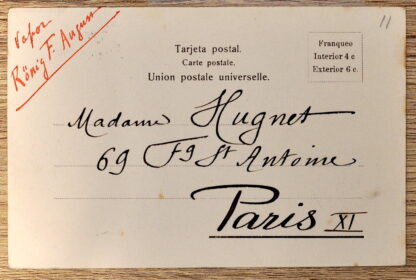 Vapor
König F. August
11
Tarjeta postal.
Carte postale.
Union postale universelle.
Franqueo
Interior 4 c
Exterior 6 c.
Madame Hugnet
69 Fg St Antoine
Paris XI